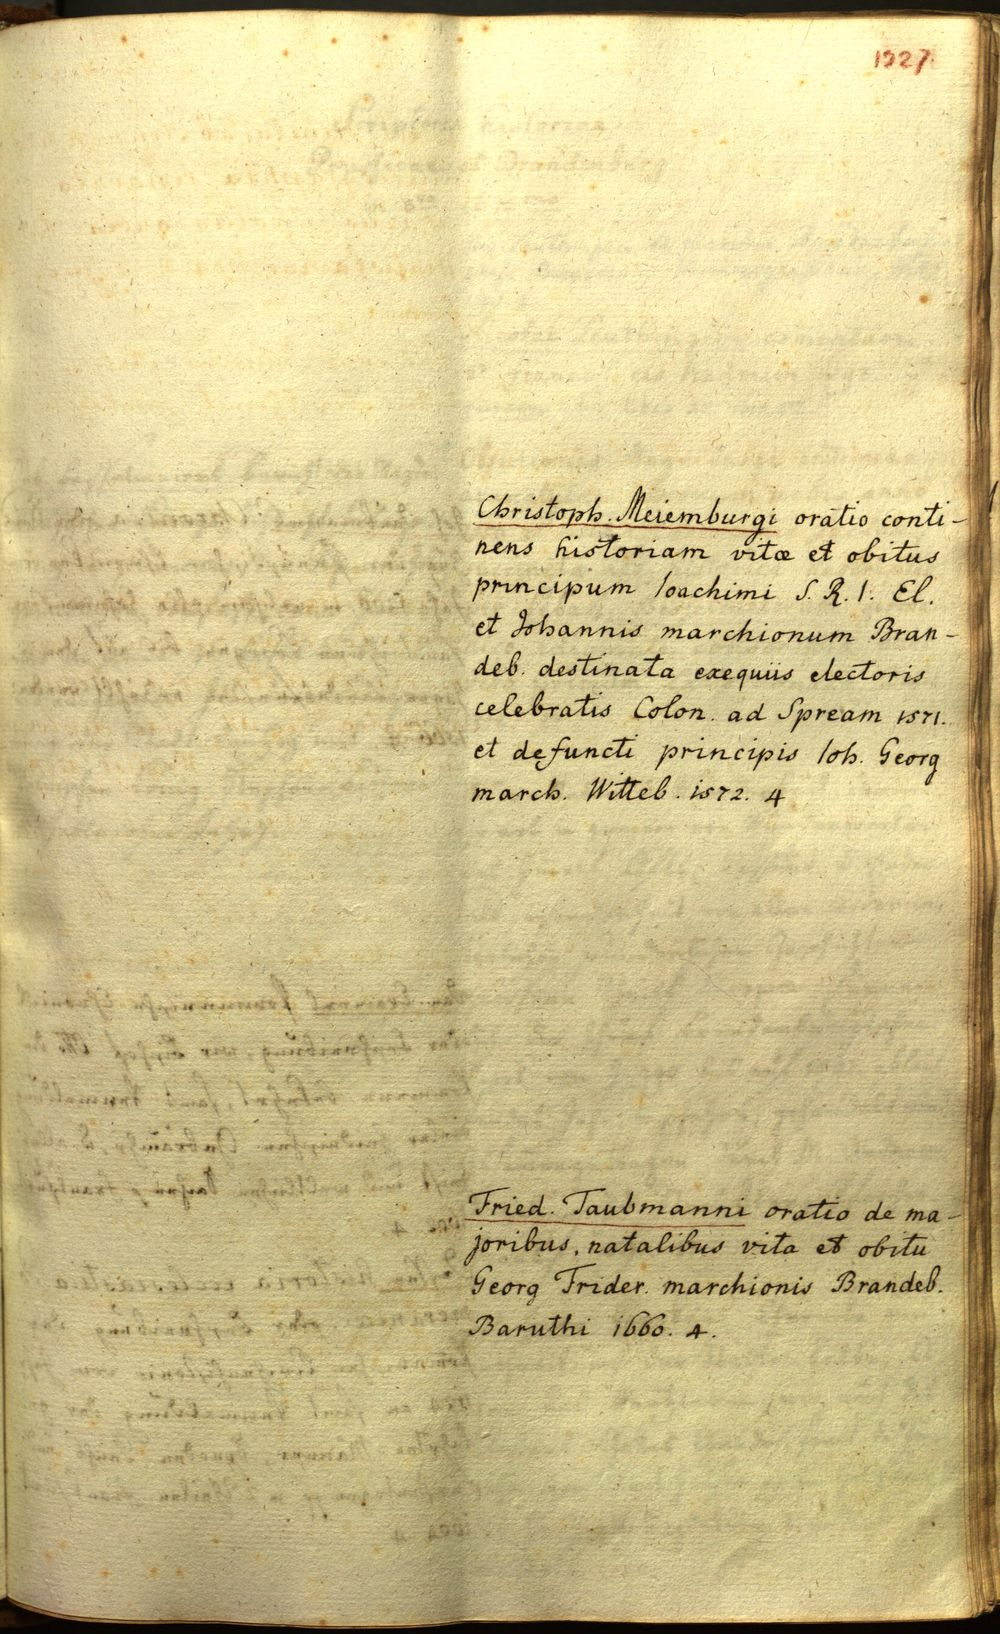 1327
Christoph. Meiemburgi oratio conti-
nens historiam vitæ et obitus
principum Ioachimi S. R. I. El.
et Johannis marchionum Bran-
deb. destinata exequiis electoris
celebratis Colon. ad Spream 1571.
et defuncti principis Ioh. Georg
march. Witteb. 1572. 4
Fried. Taubmanni oratio de ma-
joribus, natalibus vita et obitu
Georg Frider. marchionis Brandeb.
Baruthi 1660. 4.